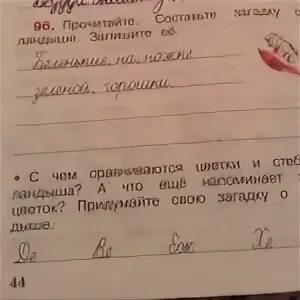 96. Прочитайте. Составьте загадку
ландыше. Запишите её.
Беленькие на ножке
зеленой, горошки
• С чем сравниваются цветки и стеб
ландыша? А что ещё напоминает
цветок? Придумайте свою загадку о
дыше.
44